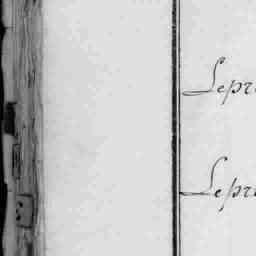 Lepr
Lepr